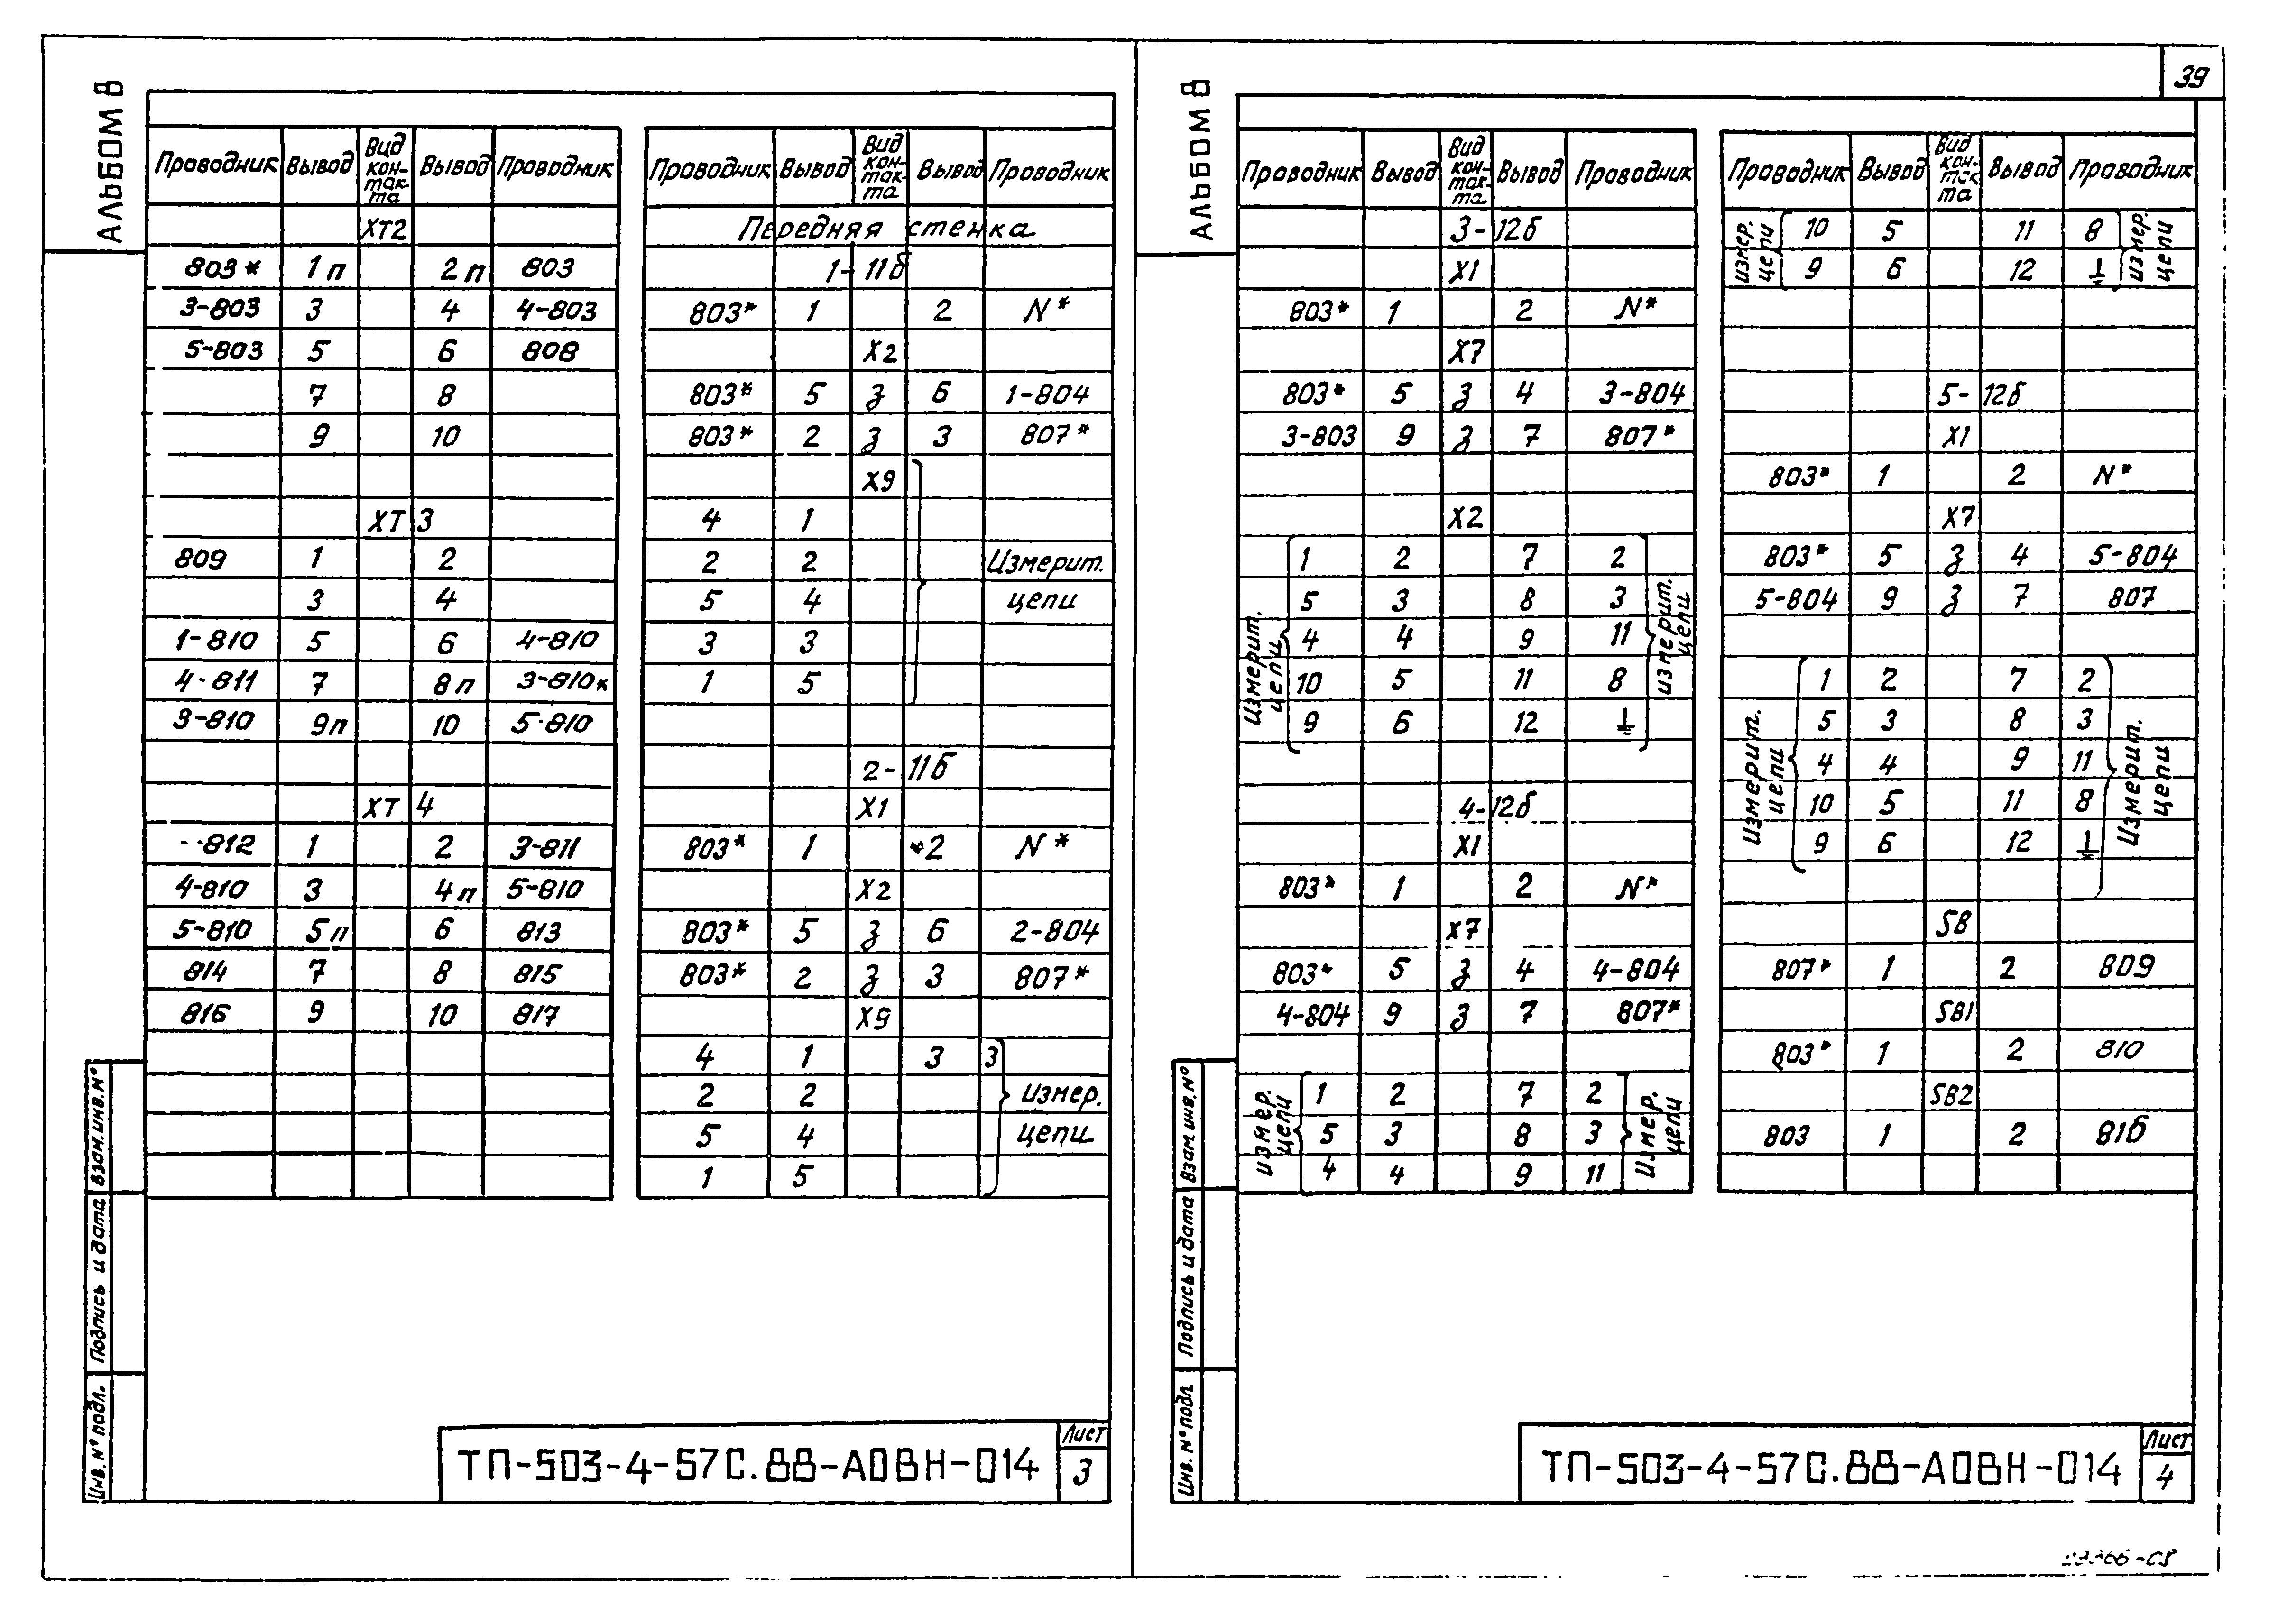 АЛЬБОМ 8
Проводник Вывод Вид кон-так-та Вывод Проводник
ХТ2
803* 1п 2п 803
3-803 3 4 4-803
5-803 5 6 808
7 8
9 10
ХТ 3
809 1 2
3 4
1-810 5 6 4-810
4-811 7 8п 3-810*
3-810 9п 10 5-810
ХТ 4
812 1 2 3-811
4-810 3 4п 5-810
5-810 5п 6 813
814 7 8 815
816 9 10 817
Проводник Вывод Вид кон-так-та Вывод Проводник
Передняя стенка
1-11б
803* 1 2 N*
Х2
803* 5 З 6 1-804
803* 2 З 3 807*
Х9
4 1
2 2 Измерит.
5 4 цепи
3 3
1 5
2-11б
Х1
803* 1 *2 N*
Х2
803* 5 З 6 2-804
803* 2 З 3 807*
Х9
4 1 3 3
2 2 Измер.
5 4 цепи
1 5
Взам.инв.№
Подпись и дата
Инв.№подл.
ТП-503-4-57С.88-АОВН-014
Лист
3
39
АЛЬБОМ 8
Проводник Вывод Вид кон-так-та Вывод Проводник
3-12б
Х1
803* 1 2 N*
Х7
803* 5 З 4 3-804
3-803 9 З 7 807*
Х2
1 2 7 2
5 3 8 3
4 4 9 11
10 5 11 8
9 6 12 ⏚
Измерит. цепи
Измерит. цепи
4-12б
Х1
803* 1 2 N*
Х7
803* 5 З 4 4-804
4-804 9 З 7 807*
1 2 7 2
5 3 8 3
4 4 9 11
Измер. цепи
Измер. цепи
Проводник Вывод Вид кон-так-та Вывод Проводник
10 5 11 8
9 6 12 ⏚
Измер. цепи
Измер. цепи
5-12б
Х1
803* 1 2 N*
Х7
803* 5 З 4 5-804
5-804 9 З 7 807
1 2 7 2
5 3 8 3
4 4 9 11
10 5 11 8
9 6 12 ⏚
Измерит. цепи
Измерит. цепи
SB
807* 1 2 809
SB1
803* 1 2 810
SB2
803 1 2 816
Взам.инв.№
Подпись и дата
Инв.№подл
ТП-503-4-57С.88-АОВН-014
Лист
4